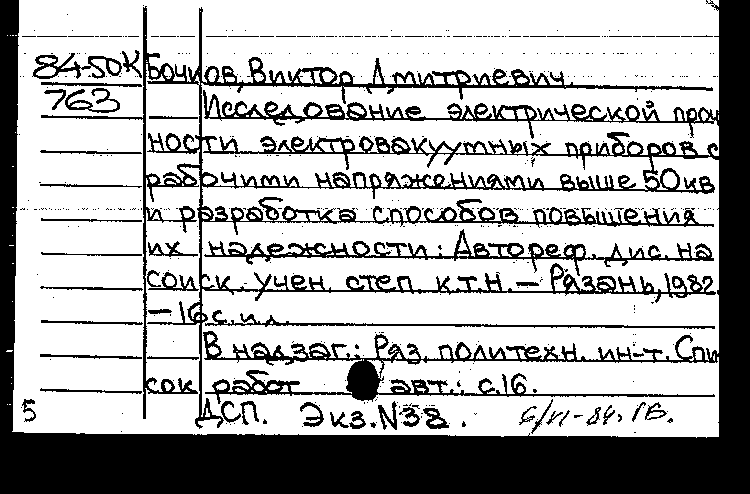 84-50К Бочков, Виктор Дмитриевич.
763 Исследование электрической проч
ности электровакуумных приборов с
рабочими напряжениями выше 50кв
и разработка способов повышения
их надежности: Автореф. дис. на
соиск. учен. степ. к.т.н. – Рязань, 1982.
– 16с. ил.
В надзаг.: Ряз. политехн. ин-т. Спи
сок работ авт.: с.16.
5 ДСП. Экз.N38. 6/VI-84.